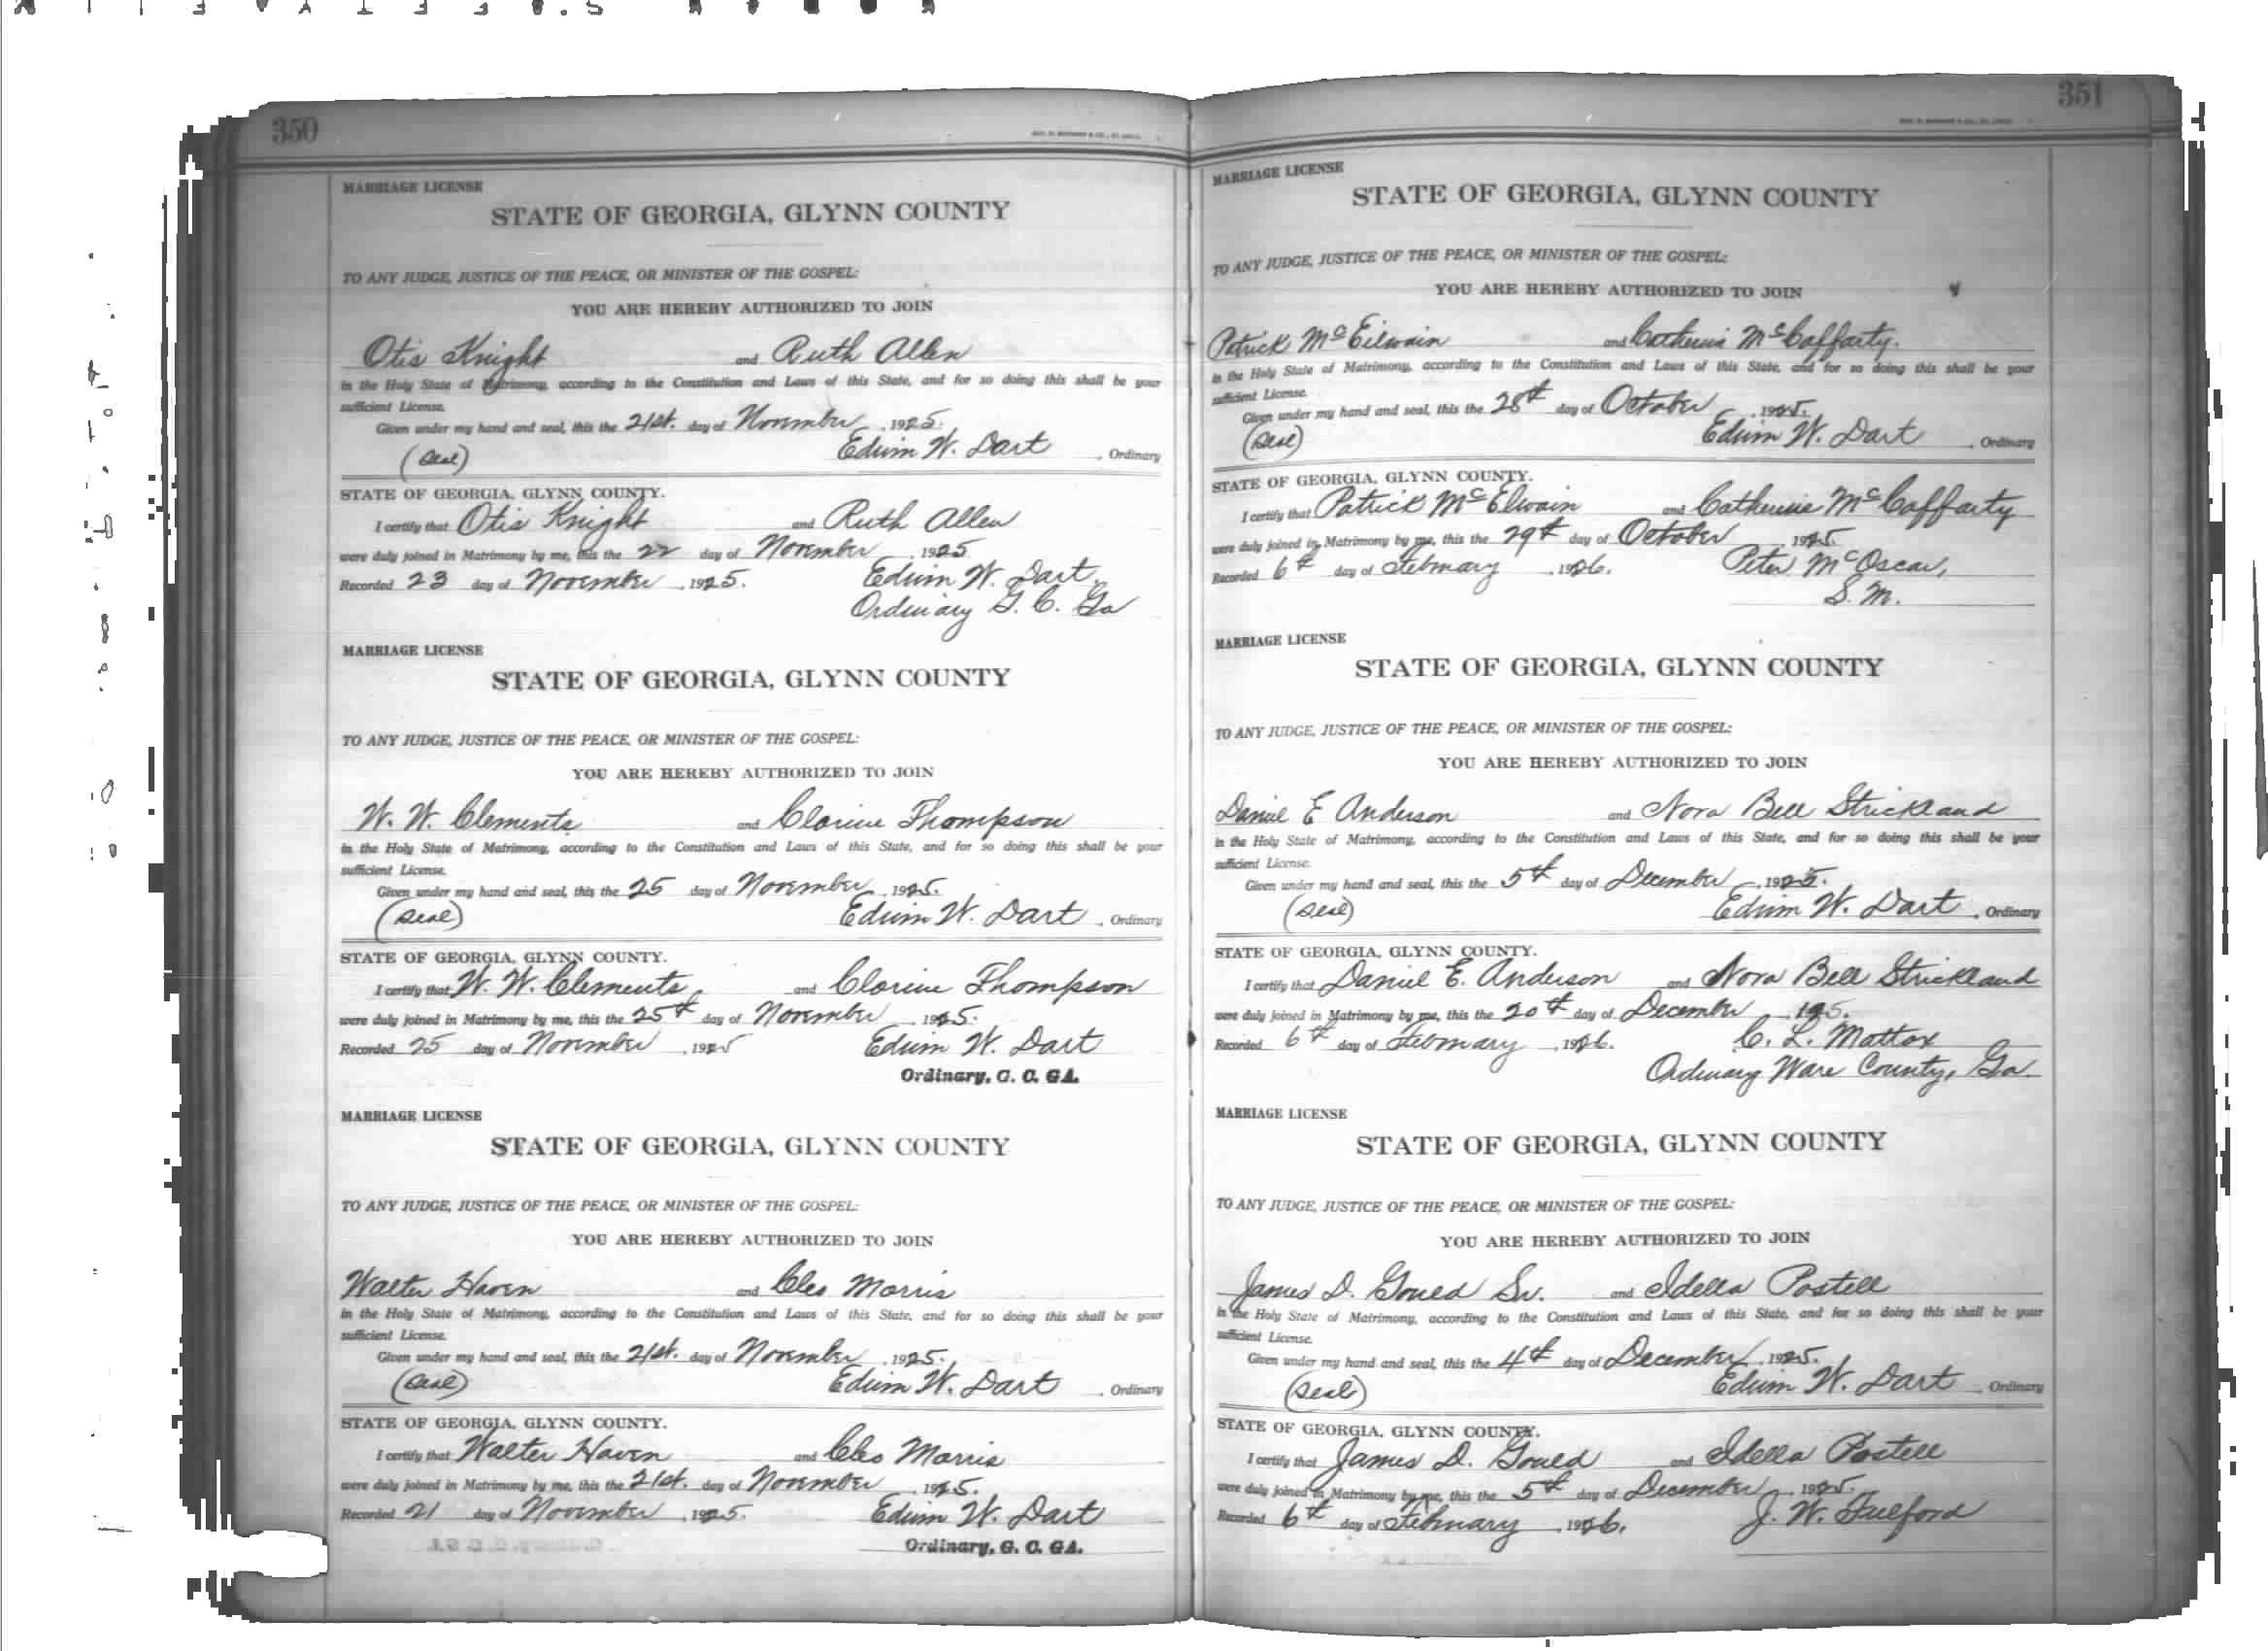 350
MARRIAGE LICENSE
STATE OF GEORGIA, GLYNN COUNTY
TO ANY JUDGE, JUSTICE OF THE PEACE, OR MINISTER OF THE GOSPEL:
YOU ARE HEREBY AUTHORIZED TO JOIN
Otis Knight and Ruth Allen
in the Holy State of Matrimony, according to the Constitution and Laws of this State, and for so doing this shall be your
sufficient License.
Given under my hand and seal, this the 21st. day of November, 1925.
(Seal) Edwin W. Dart, Ordinary
STATE OF GEORGIA, GLYNN COUNTY.
I certify that Otis Knight and Ruth Allen
were duly joined in Matrimony by me, this the 22 day of November, 1925
Recorded 23 day of November, 1925. Edwin W. Dart,
Ordinary G. C. Ga
MARRIAGE LICENSE
STATE OF GEORGIA, GLYNN COUNTY
TO ANY JUDGE, JUSTICE OF THE PEACE, OR MINISTER OF THE GOSPEL:
YOU ARE HEREBY AUTHORIZED TO JOIN
W. W. Clements and Clorine Thompson
in the Holy State of Matrimony, according to the Constitution and Laws of this State, and for so doing this shall be your
sufficient License.
Given under my hand and seal, this the 25 day of November, 1925.
(Seal) Edwin W. Dart, Ordinary
STATE OF GEORGIA, GLYNN COUNTY.
I certify that W. W. Clements, and Clorine Thompson
were duly joined in Matrimony by me, this the 25th day of November, 1925.
Recorded 25 day of November, 1925 Edwin W. Dart
Ordinary, G. C. GA.
MARRIAGE LICENSE
STATE OF GEORGIA, GLYNN COUNTY
TO ANY JUDGE, JUSTICE OF THE PEACE, OR MINISTER OF THE GOSPEL:
YOU ARE HEREBY AUTHORIZED TO JOIN
Walter Haven and Cleo Morris
in the Holy State of Matrimony, according to the Constitution and Laws of this State, and for so doing this shall be your
sufficient License.
Given under my hand and seal, this the 21st. day of November, 1925.
(Seal) Edwin W. Dart, Ordinary
STATE OF GEORGIA, GLYNN COUNTY.
I certify that Walter Haven and Cleo Morris
were duly joined in Matrimony by me, this the 21st. day of November, 1925.
Recorded 21 day of November, 1925. Edwin W. Dart
Ordinary, G. C. GA.
351
MARRIAGE LICENSE
STATE OF GEORGIA, GLYNN COUNTY
TO ANY JUDGE, JUSTICE OF THE PEACE, OR MINISTER OF THE GOSPEL:
YOU ARE HEREBY AUTHORIZED TO JOIN
Patrick McEilwain and Catherine McCaffarty.
in the Holy State of Matrimony, according to the Constitution and Laws of this State, and for so doing this shall be your
sufficient License.
Given under my hand and seal, this the 28th day of October, 1925.
(Seal) Edwin W. Dart, Ordinary
STATE OF GEORGIA, GLYNN COUNTY.
I certify that Patrick McElwain and Catherine McCaffarty
were duly joined in Matrimony by me, this the 29th day of October, 1925.
Recorded 6th day of February, 1926. Peter McOscar,
S. M.
MARRIAGE LICENSE
STATE OF GEORGIA, GLYNN COUNTY
TO ANY JUDGE, JUSTICE OF THE PEACE, OR MINISTER OF THE GOSPEL:
YOU ARE HEREBY AUTHORIZED TO JOIN
Daniel E Anderson and Nora Bell Strickland
in the Holy State of Matrimony, according to the Constitution and Laws of this State, and for so doing this shall be your
sufficient License.
Given under my hand and seal, this the 5th day of December, 1925.
(Seal) Edwin W. Dart, Ordinary
STATE OF GEORGIA, GLYNN COUNTY.
I certify that Daniel E. Anderson and Nora Bell Strickland
were duly joined in Matrimony by me, this the 20th day of December, 1925.
Recorded 6th day of February, 1926. C. L. Mattox
Ordinary Ware County, Ga
MARRIAGE LICENSE
STATE OF GEORGIA, GLYNN COUNTY
TO ANY JUDGE, JUSTICE OF THE PEACE, OR MINISTER OF THE GOSPEL:
YOU ARE HEREBY AUTHORIZED TO JOIN
James D. Gould Sr. and Idella Postell
in the Holy State of Matrimony, according to the Constitution and Laws of this State, and for so doing this shall be your
sufficient License.
Given under my hand and seal, this the 4th day of December, 1925.
(Seal) Edwin W. Dart, Ordinary
STATE OF GEORGIA, GLYNN COUNTY.
I certify that James D. Gould and Idella Postell
were duly joined in Matrimony by me, this the 5th day of December, 1925.
Recorded 6th day of February, 1926. J. W. Fulford